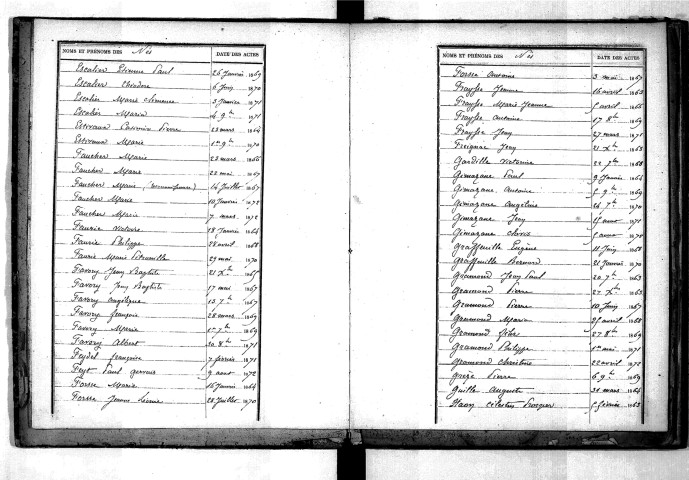 NOMS ET PRÉNOMS DES Nés DATE DES ACTES
Escalier Etienne Paul 26 Janvier 1869
Escalier 6 Juin 1870
Escalier Marie Clémence 3 Janvier 1871
Escalier Maria 4 9bre 1871
Estoraux Pierre 23 mars 1864
Estoraux Marie 1er 9bre 1870
Faucher Marie 22 mars 1866
Faucher Marie 22 mai 1867
Faucher Marie 14 Juillet 1867
Faucher Marie 10 Janvier 1872
Faucher Marie 7 mars 1872
Faurie Victoire 18 Janvier 1864
Faurie Philippe 28 avril 1868
Faurie Marie Pétronille 29 mai 1870
Favory Jean Baptiste 21 Xbre 1865
Favory Jean Baptiste 17 mai 1867
Favory Angélique 13 7bre 1867
Favory françoise 28 mars 1869
Favory Marie 1er 7bre 1869
Favory Albert 30 8bre 1871
Feydel françoise 7 février 1871
Feyt Paul Gervais 9 aout 1872
Forsse Marie 16 Janvier 1864
Forsse Jeanne 28 Juillet 1870
NOMS ET PRÉNOMS DES Nés DATE DES ACTES
Forsse Antoine 3 mai 1867
Fraysse Jeanne 16 avril 1863
Fraysse Marie Jeanne avril 1865
Fraysse Antoine 17 8bre 1869
Frayssse Jean 27 mars 1871
Freignac Jean 21 Xbre 1863
Gardille Victorine 22 7bre 1868
Gimazane Paul 9 Janvier 1864
Gimazane Antoine 9bre 1869
Gimazane Angéline 26 7bre 1870
Gimazane Jean aout 1871
Gimazane aout 1872
Graffeuille Eugène 11 Juin 1868
Graffeuille Bernard 21 Janvier 1870
Gramond Jean Paul 20 7bre 1863
Gramond Pierre 27 Xbre 1863
Gramond Pierre 10 Juin 1867
Gramond Marie 25 avril 1868
Gramond 27 8bre 1869
Gramond Philippe 1er mai 1871
Gramond Christine 22 avril 1872
Grèze Pierre 6 9bre 1869
Guille Auguste 31 mars 1864
Célestin février 1863